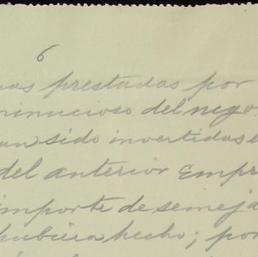 6
nas prestadas por
minucioso del nego
an sido invertidas e
del anterior Empr
importe de semeja
hubiera hecho; por